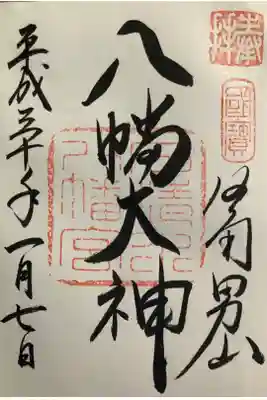 奉拝
國寶
男山
八幡大神
石清水
八幡宮
平成三十年一月七日